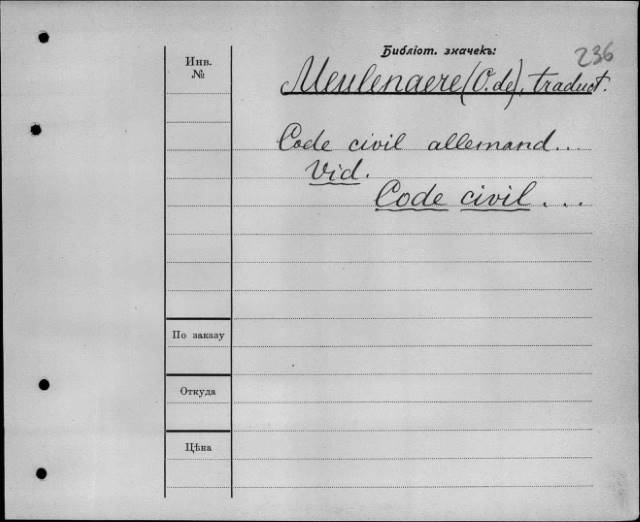 Библіот. значекъ:
236
Инв.
№
Meulenaere (O. de), traduct.
Code civil allemand...
Vid.
Code civil...
По заказу
Откуда
Цѣна